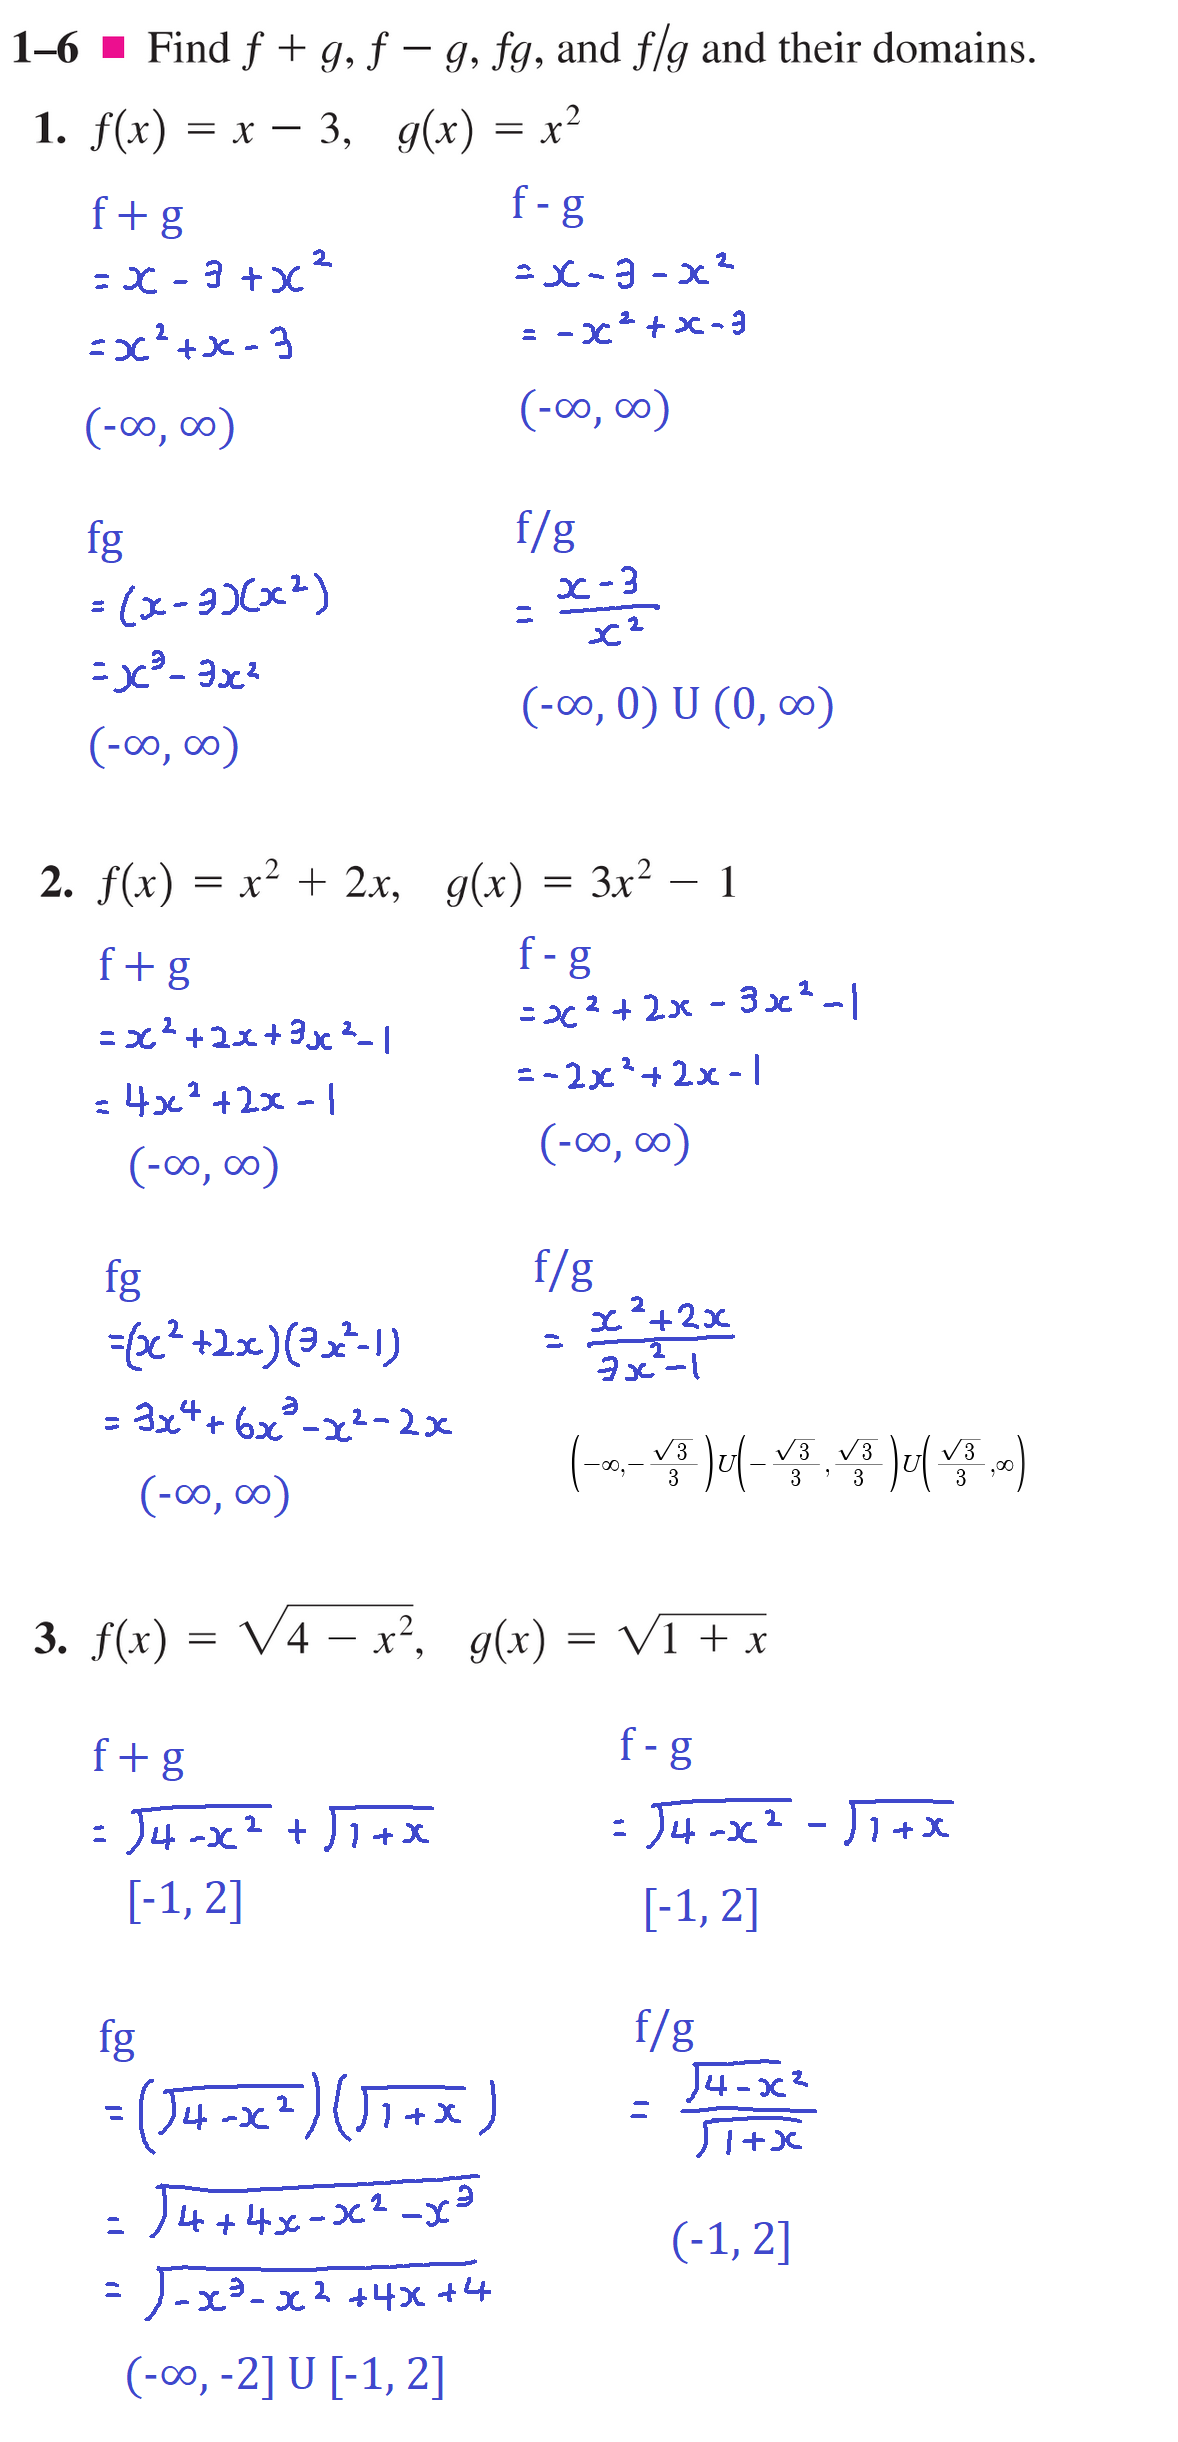 1–6 ■ Find f + g, f − g, fg, and f/g and their domains.
1. f(x) = x − 3, g(x) = x²
f + g
= x - 3 + x²
= x² + x - 3
(-∞, ∞)
f - g
= x - 3 - x²
= -x² + x - 3
(-∞, ∞)
fg
= (x - 3)(x²)
= x³ - 3x²
(-∞, ∞)
f/g
= (x - 3)/x²
(-∞, 0) U (0, ∞)
2. f(x) = x² + 2x, g(x) = 3x² − 1
f + g
= x² + 2x + 3x² - 1
= 4x² + 2x - 1
(-∞, ∞)
f - g
= x² + 2x - 3x² - 1
= -2x² + 2x - 1
(-∞, ∞)
fg
= (x² + 2x)(3x² - 1)
= 3x⁴ + 6x³ - x² - 2x
(-∞, ∞)
f/g
= (x² + 2x)/(3x² - 1)
(−∞, −√3/3) U (−√3/3, √3/3) U (√3/3, ∞)
3. f(x) = √(4 − x²), g(x) = √(1 + x)
f + g
= √(4 - x²) + √(1 + x)
[-1, 2]
f - g
= √(4 - x²) - √(1 + x)
[-1, 2]
fg
= (√(4 - x²))(√(1 + x))
= √(4 + 4x - x² - x³)
= √(-x³ - x² + 4x + 4)
(-∞, -2] U [-1, 2]
f/g
= √(4 - x²)/√(1 + x)
(-1, 2]